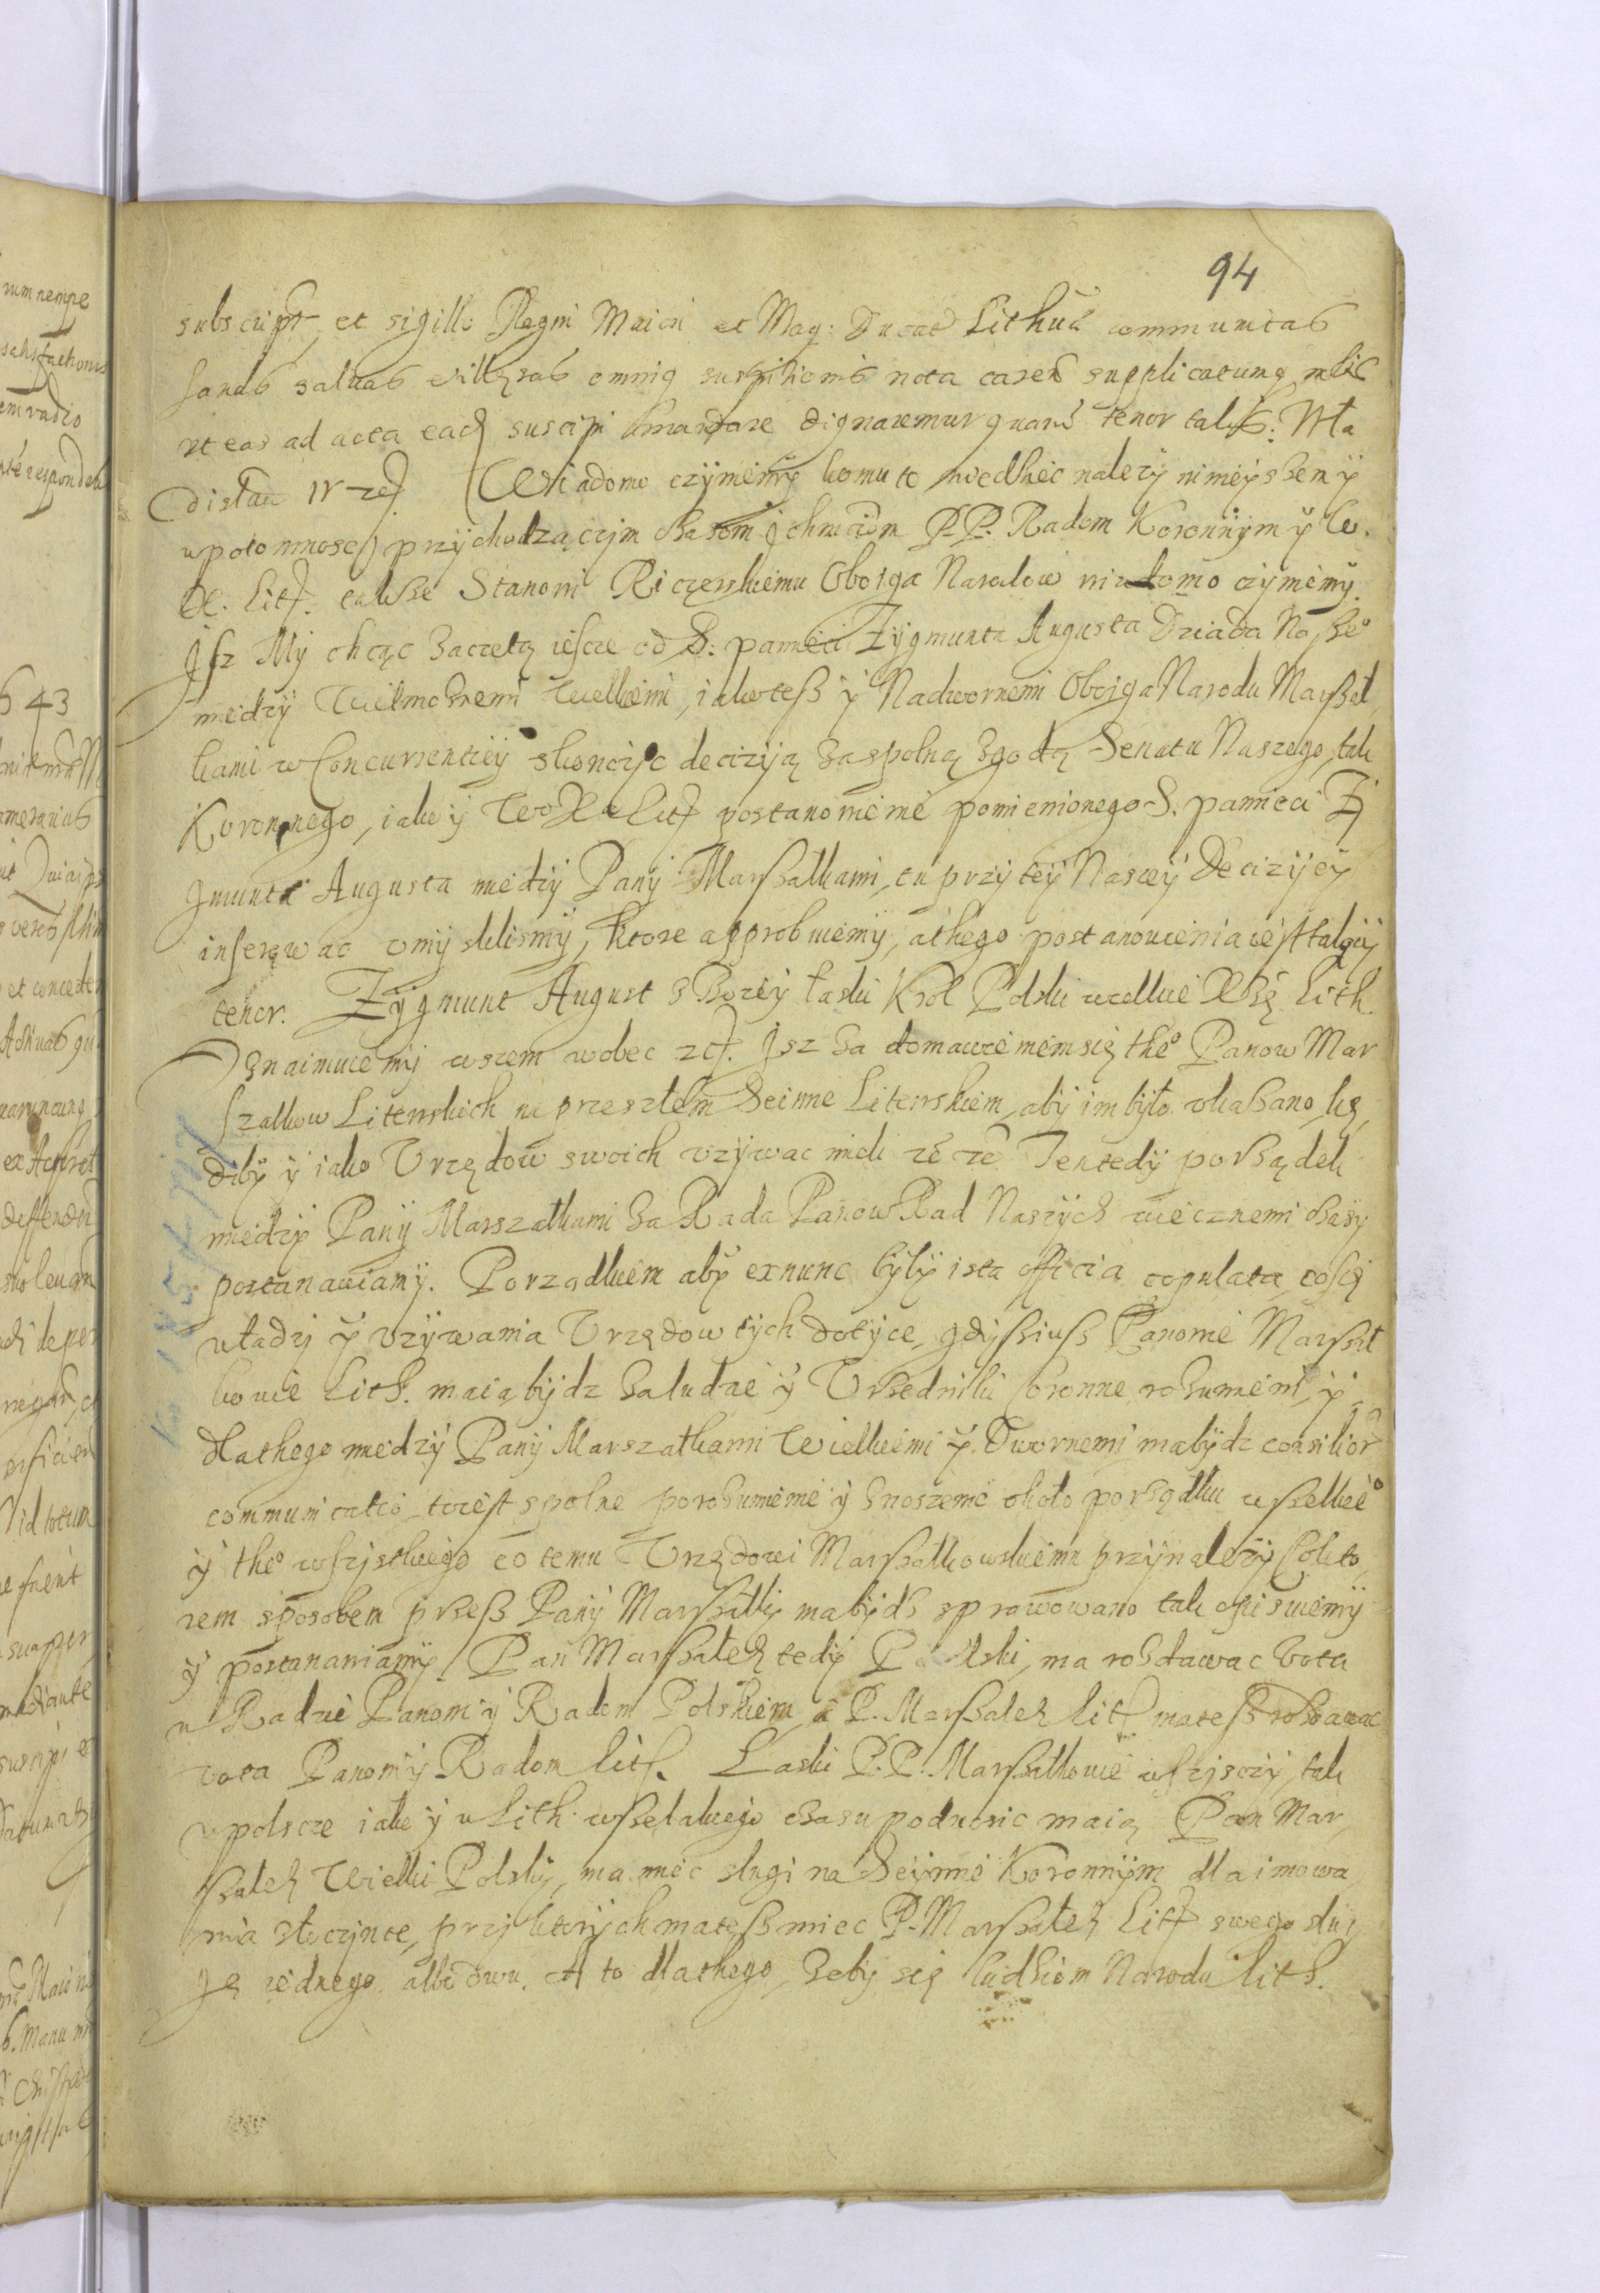 94
subscript et sigillo Regni Maiori et Mag: Ducat Lithua communitas
sanas saluas illęsas omniq suspitionis nota caren supplicatumq
vt eas ad acta eadq suscipi mandare dignaremur quarũ tenor talis: Wła
dislau IV zcſ. Wiadomo czyniemy komu to wiedziec nalezy ninieyszemy
y potomnosci przychodzącym czasom Ichmciom P.P. Radom Koronnym y W.
X. Lith. takze Stanowi Riczerskiemu Oboiga Narodow wiadomo czyniemy.
Jsz My chcąc zaczętą iescze od S: pamięci Zygmunta Augusta Dziada Nasze°
miedzy Wielmoznemi Wielkiemi, iakotesz y Nadwornemi Oboiga Narodu Marszał,
kami w Concurrentiey skonczyc deciziją za spolną zgodą Senatu Naszego, tak
Koronnego, iako y Wo X Lith postanowienie pomienionego S. pamieci Zy
gmunta Augusta miedzy Pany Marszałkami, tu przy tey Naszey Deciziyey
inserować vmyslilismy, ktore approbuiemy, a thego postanowienia iest takowy
tenor. Zygmunt August z Bozey łaski Krol Polski wielkie Xżę Lith.
Oznaimuiemy wszem wobec zcſ. Jsz za domawieniem się the° Panow Mar
szałkow Litewskich na przeszłem Seimie Litewskiem, aby im było vkazano, kę
diby y iako Vrzędow swoich vzywac mieli zc zc Ten tedy porządek
miedzy Pany Marszałkami za Rada Panow Rad Naszych wiecznemi czasy
postanawiamy. Porządkiem aby ex nunc były ista officia copulata, co się
władzy y vzywania Vrzędow tych dotyce, gdysz iusz Panowie Marszał
kowie Lith. maią bydz zaludzie y Vrzedniki Coronne rozumieni, y
dla thego miedzy Pany Marszałkami Wielkiemi y Dwornemi ma bydz consilior
communicatio, to iest spolne porozumienie y znoszenie około porządku wszelkie°
y the° wszystkiego co temu Vrzędowi Marszałkowskiemu przynalezy, Co kto,
rem sposobem przesz Pany Marszałki ma bydz sprawowano tak opisuiemy
y postanawiamy Pan Marszałek tedy Polski, ma rozdawac vota
w Radzie Panom y Radom Polskiem, a P. Marszałek Lith. ma tesz rozdawac
vota Panom y Radom Lith. Laski P.P. Marszałkowie wszysczy, tak
w Polscze iako y w Lith. wszelakiego czasu podnosic maią Pan Mar,
szałek Wielki Polski, ma miec sługi na Seymie Koronnym dla imowa
nia złoczynce, przy ktorych ma tesz miec P. Marszałek Lith swego słu
gę iednego albo dwu. A to dla thego, zeby się ludziom Narodu Lith.